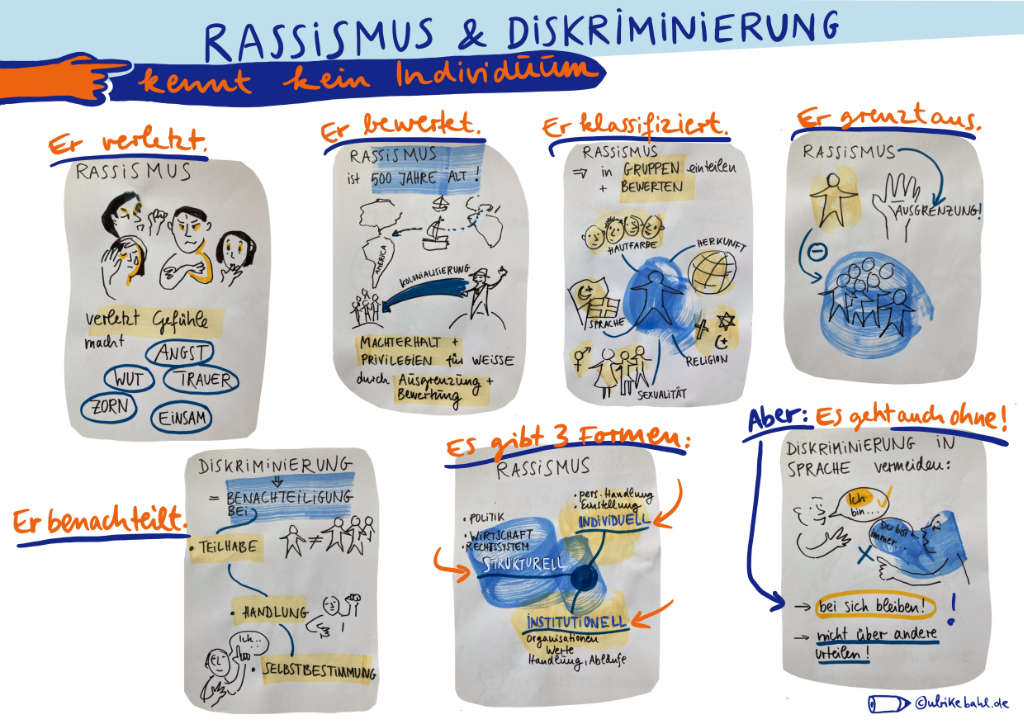 RASSISMUS & DISKRIMINIERUNG
kennt kein Individuum
Er verletzt.
RASSISMUS
verletzt Gefühle
macht
ANGST
WUT
TRAUER
ZORN
EINSAM
Er bewertet.
RASSISMUS
ist 500 JAHRE ALT!
AMERICA
KOLONIALISIERUNG
MACHTERHALT +
PRIVILEGIEN für WEISSE
durch Ausgrenzung +
Bewertung
Er klassifiziert.
RASSISMUS
⇒ in GRUPPEN einteilen
+ BEWERTEN
HAUTFARBE
HERKUNFT
SPRACHE
RELIGION
SEXUALITÄT
Er grenzt aus.
RASSISMUS
AUSGRENZUNG!
Er benachteilt.
DISKRIMINIERUNG
= BENACHTEILIGUNG
BEI
• TEILHABE
≠
• HANDLUNG
Ich...
• SELBSTBESTIMMUNG
Es gibt 3 Formen:
RASSISMUS
• pers. Handlung
• Einstellung
INDIVIDUELL
• POLITIK
• WIRTSCHAFT
• RECHTSSYSTEM
STRUKTURELL
INSTITUTIONELL
Organisationen
Werte
Handlung, Abläufe
Aber: Es geht auch ohne!
DISKRIMINIERUNG IN
SPRACHE vermeiden:
Ich
bin...
Du bist
immer...
→ bei sich bleiben!
!
→ nicht über andere
urteilen!
©ulrikebahl.de